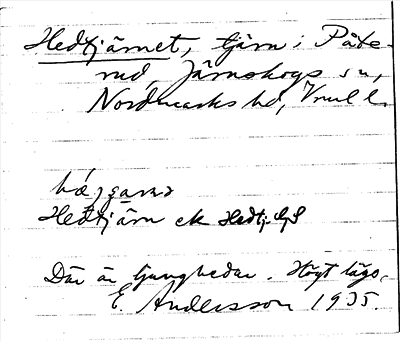 Hedtjärnet, tjärn i Påte-
rud, Järnskogs sn,
Nordmarks hd, Vrml l.
Hedtjärn ek Hedtj. GS
Där är ljunghedar. Högt läge.
E. Andersson 1935.